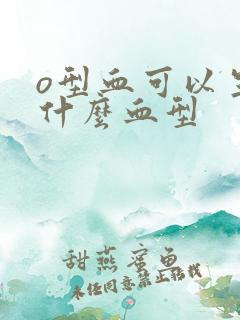 o型血可以生
什麼血型
甜燕蜜鱼
未经同意禁止转载